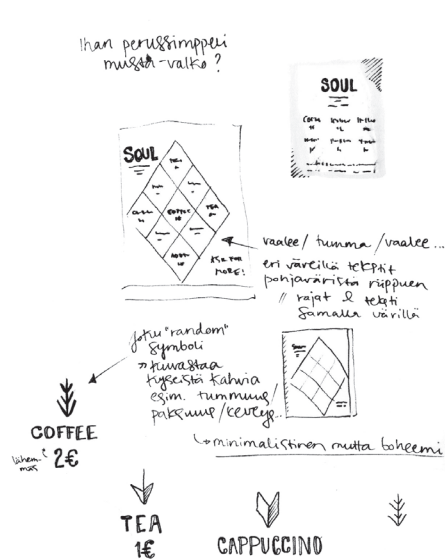 Ihan perussimppeli
musta-valko?
SOUL
SOUL
COFFEE
TEA
ASK FOR
MORE!
vaalee/ tumma /vaalee...
eri väreillä tekstit
pohjaväristä riippuen
// rajat & teksti
samalla värillä
joku "random"
symboli
» kuvastaa
kyseistä kahvia
esim. tummuus/
paksuus/keveys...
minimalistinen mutta boheemi
COFFEE
2€
TEA
1€
CAPPUCCINO